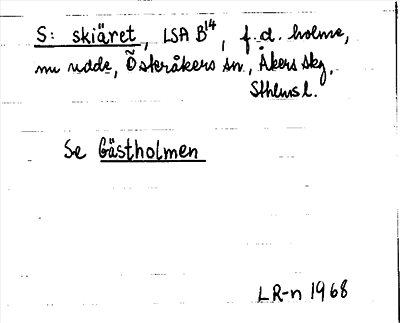 S: skiäret, LSA B14, f.d. holme,
nu udde, Österåkers sn., Åkers skg,
Sthlms l.
Se Gästholmen
LR-n 1968